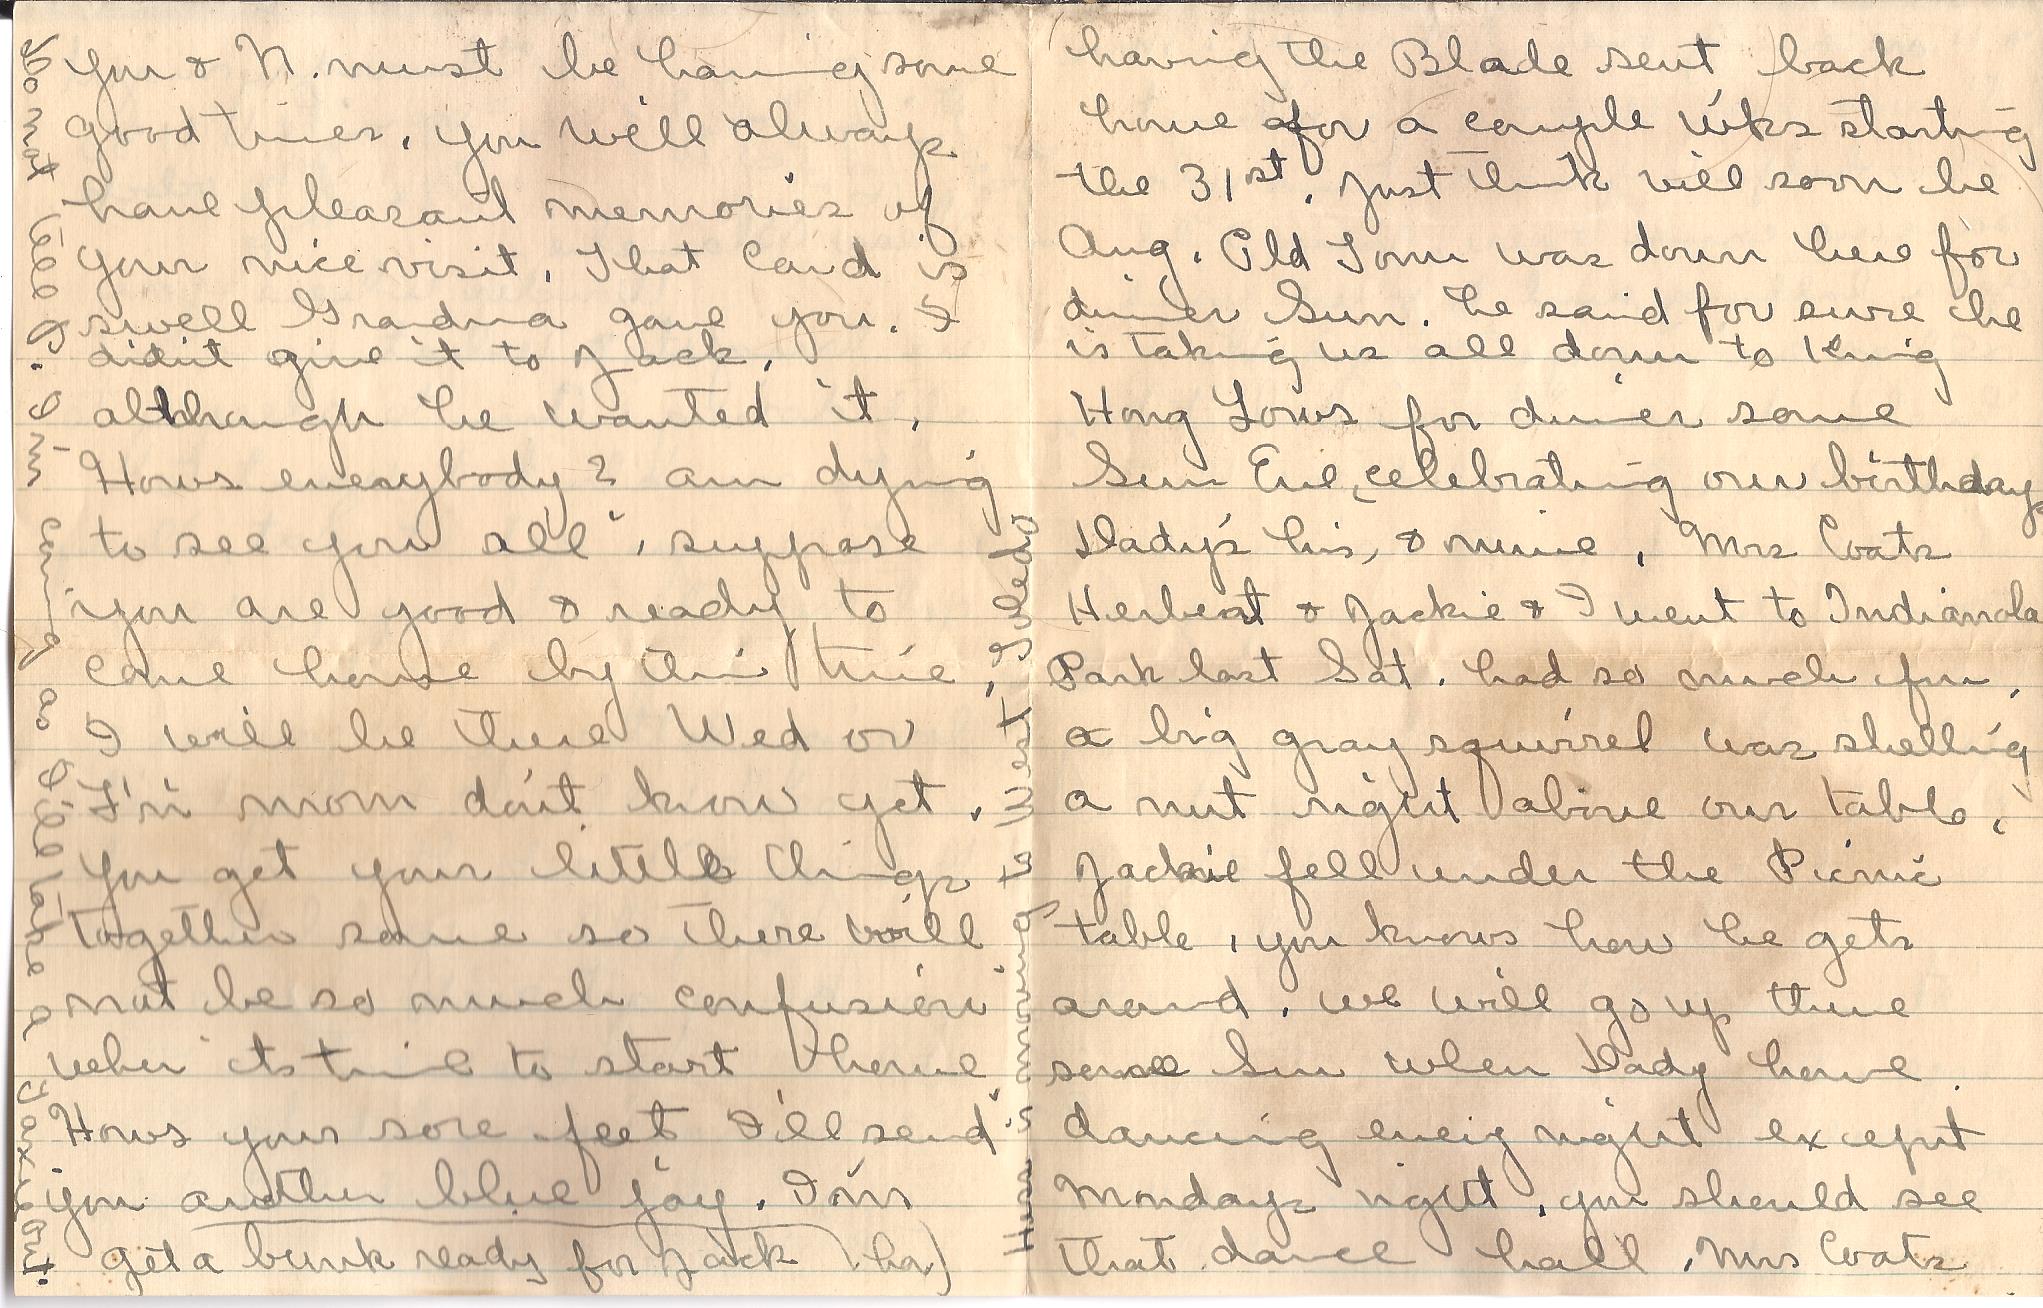 you & N. must be having some
good times, you will always
have pleasant memories of
your nice visit, That Card is
swell Grandma gave you. I
didn't give it to Jack,
although he wanted it,
Hows everybody? am dying
to see you all, suppose
you are good & ready to
come home by this time,
I will be there Wed or
Fri mom don't know yet,
You get your little things
together some so there will
not be so much confusion
when its time to start home
Hows your sore feet I'll send
you another blue jay.
get a bunk ready for Jack (ha)
Do not tell G. I'm coming as I'll take a taxie out.
is moving to West Toledo
having the Blade sent back
home for a couple wks starting
the 31st, Just think will soon be
Aug. Old Tom was down here for
dinner Sun. he said for sure he
is taking us all down to King
Hong Lows for dinner some
Sun Eve, celebrating our birthdays
Dady's his, & mine, Mrs Coats
Herbert & Jackie & I went to Indianola
Park last Sat. had so much fun,
a big gray squirrel was shelling
a nut right above our table,
Jackie fell under the Picnic
table, you knows how he gets
around. we will go up there
some Sun when Dady home.
dancing every night except
Mondays night, you should see
that dance hall, Mrs Coats